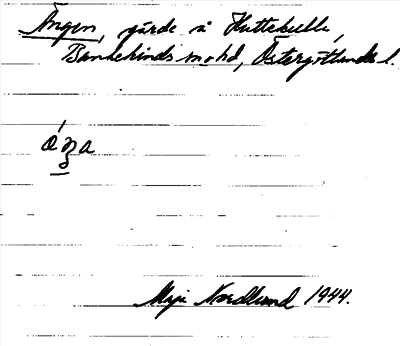 Ängen, gärde å Huttekulla,
Bankekinds sn o hd, Östergötlands l.
áŋa
Maja Nordlund 1944.